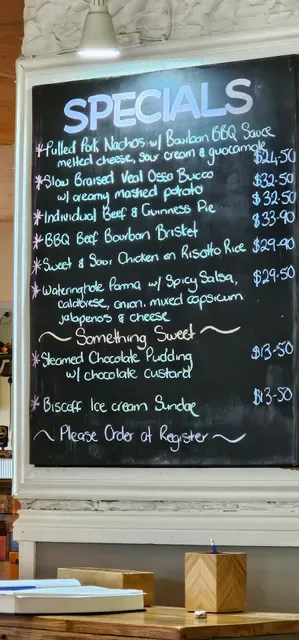 SPECIALS
*Pulled Pork Nachos w/ Bourbon BBQ Sauce
melted cheese, sour cream & guacamole $24.50
*Slow Braised Veal Osso Bucco $32.50
w/ creamy mashed potato
*Individual Beef & Guinness Pie $32.50
*BBQ Beef Bourbon Brisket $33.90
*Sweet & Sour Chicken on Risotto Rice $29.90
*Wateringhole Parma w/ Spicy Salsa, $29.50
calabrese, onion, mixed capsicum
jalapenos & cheese
~ Something Sweet ~
*Steamed Chocolate Pudding $13-50
w/ chocolate custard
*Biscoff Ice cream Sundae $13-50
~ Please Order at Register ~